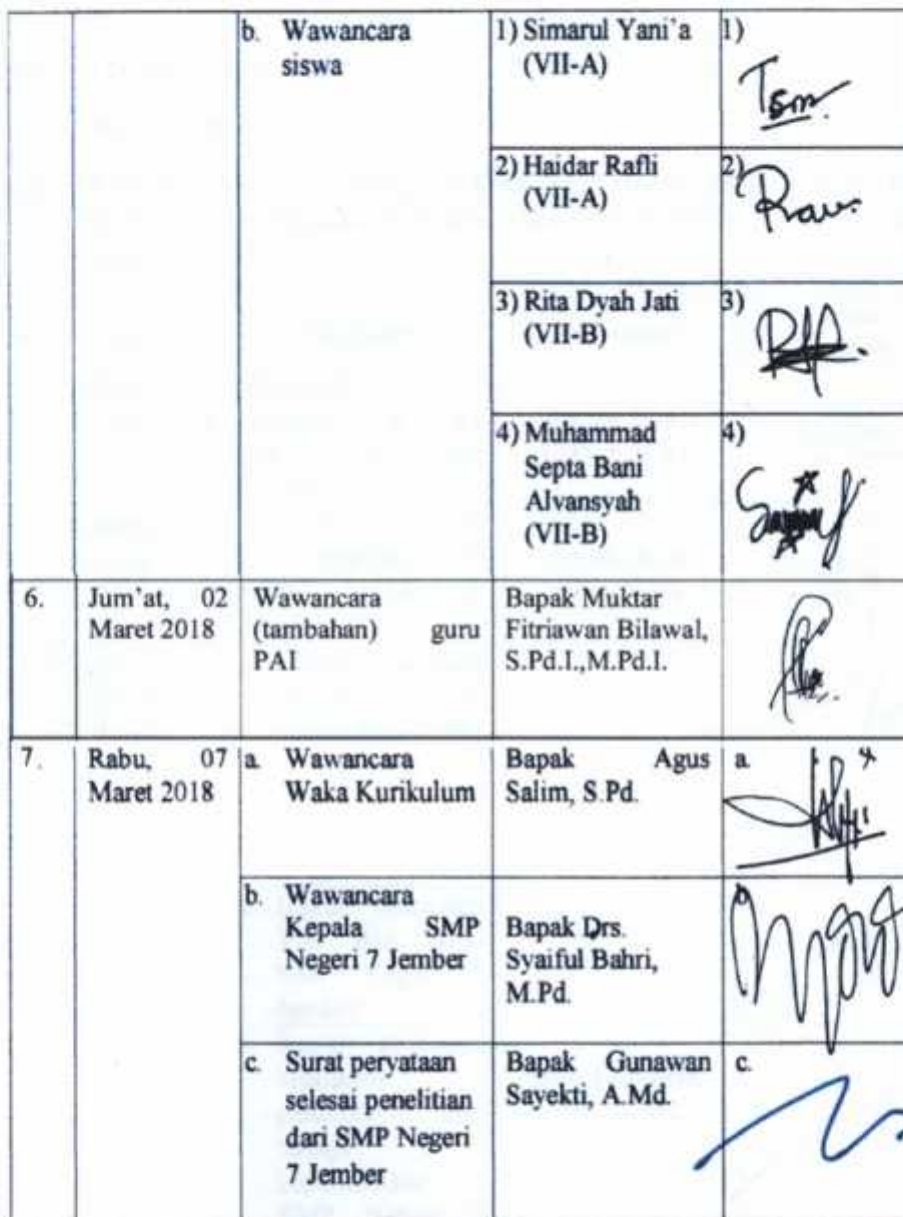 b. Wawancara
siswa
1) Simarul Yani'a
(VII-A)
1)
2) Haidar Rafli
(VII-A)
2)
3) Rita Dyah Jati
(VII-B)
3)
4) Muhammad
Septa Bani
Alvansyah
(VII-B)
4)
6.
Jum'at, 02
Maret 2018
Wawancara
(tambahan) guru
PAI
Bapak Muktar
Fitriawan Bilawal,
S.Pd.I.,M.Pd.I.
7.
Rabu, 07
Maret 2018
a. Wawancara
Waka Kurikulum
Bapak Agus
Salim, S.Pd.
a.
b. Wawancara
Kepala SMP
Negeri 7 Jember
Bapak Drs.
Syaiful Bahri,
M.Pd.
b.
c. Surat peryataan
selesai penelitian
dari SMP Negeri
7 Jember
Bapak Gunawan
Sayekti, A.Md.
c.